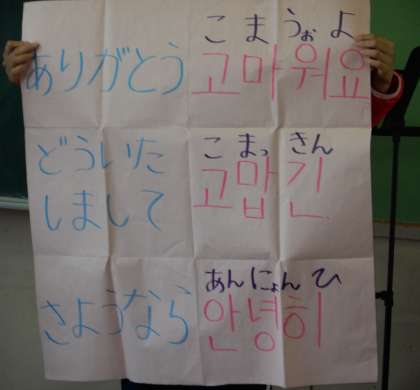 ありがとう
こまうぉよ
고마워요
どういた
しまして
こまっきん
고맙긴
さようなら
あんにょんひ
안녕히